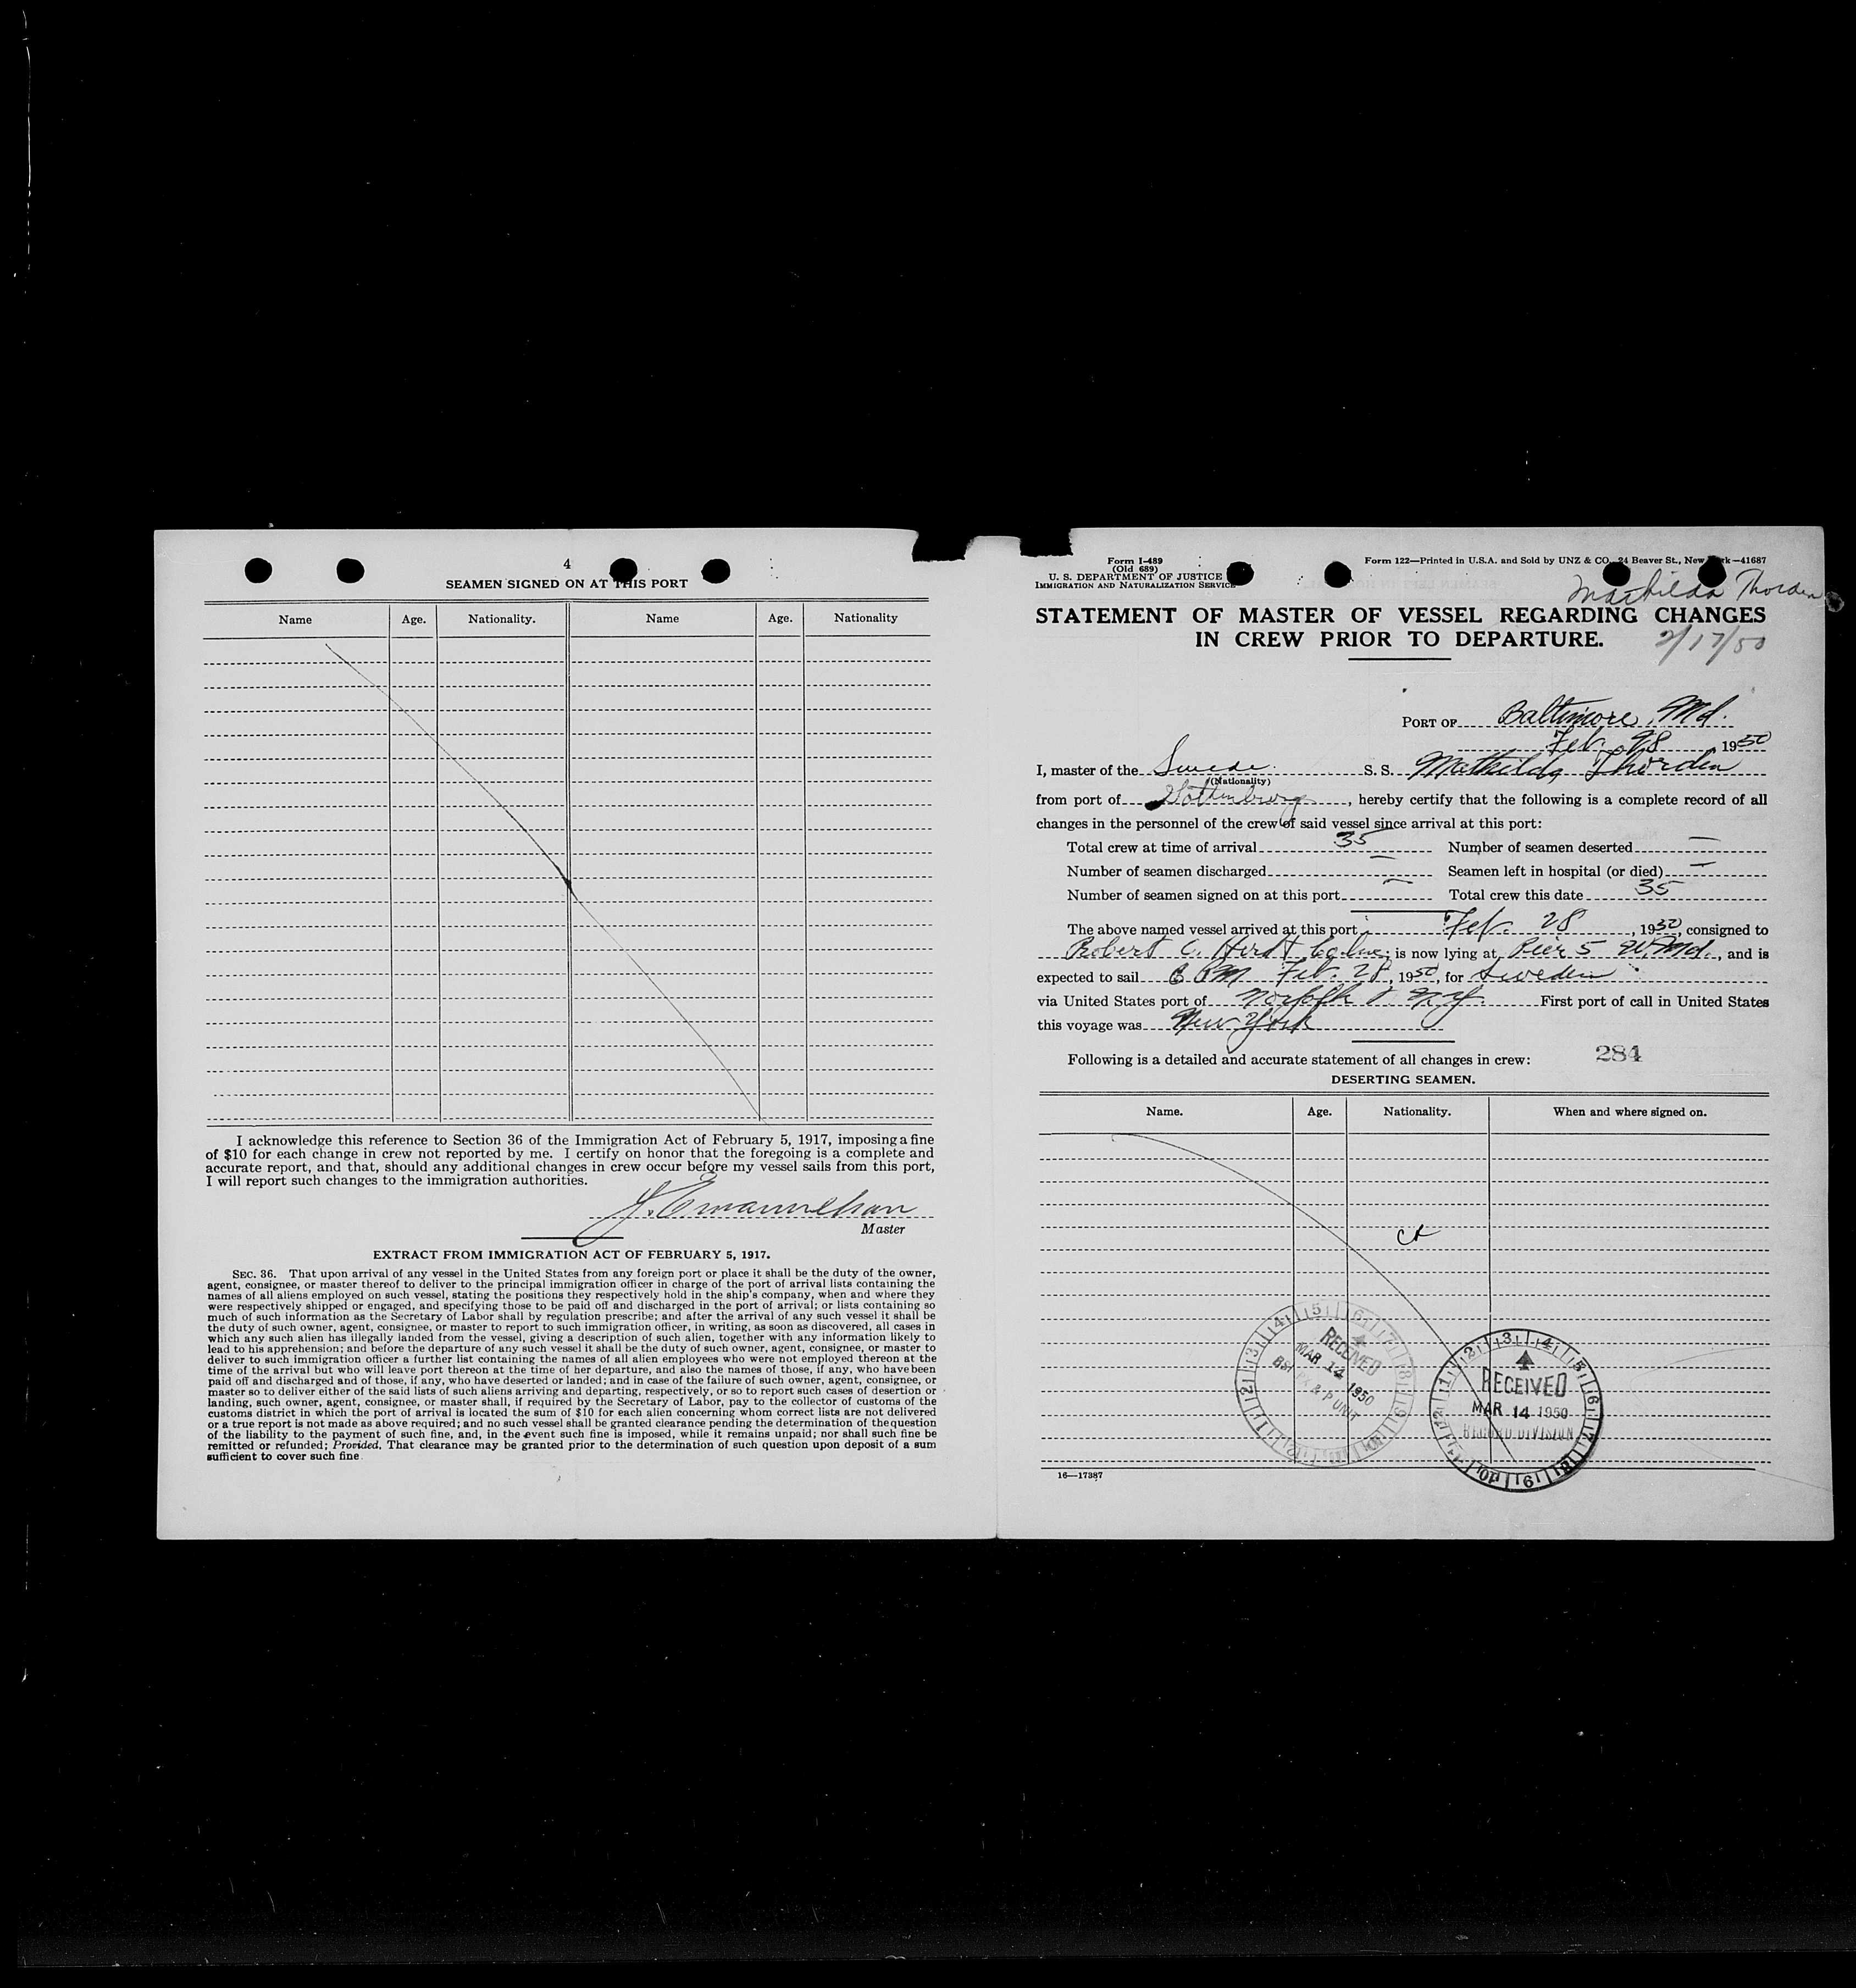 4
SEAMEN SIGNED ON AT THIS PORT
Name Age. Nationality. Name Age. Nationality
I acknowledge this reference to Section 36 of the Immigration Act of February 5, 1917, imposing a fine
of $10 for each change in crew not reported by me. I certify on honor that the foregoing is a complete and
accurate report, and that, should any additional changes in crew occur before my vessel sails from this port,
I will report such changes to the immigration authorities.
J. Emanuelson
Master
EXTRACT FROM IMMIGRATION ACT OF FEBRUARY 5, 1917.
SEC. 36. That upon arrival of any vessel in the United States from any foreign port or place it shall be the duty of the owner,
agent, consignee, or master thereof to deliver to the principal immigration officer in charge of the port of arrival lists containing the
names of all aliens employed on such vessel, stating the positions they respectively hold in the ship's company, when and where they
were respectively shipped or engaged, and specifying those to be paid off and discharged in the port of arrival; or lists containing so
much of such information as the Secretary of Labor shall by regulation prescribe; and after the arrival of any such vessel it shall be
the duty of such owner, agent, consignee, or master to report to such immigration officer, in writing, as soon as discovered, all cases in
which any such alien has illegally landed from the vessel, giving a description of such alien, together with any information likely to
lead to his apprehension; and before the departure of any such vessel it shall be the duty of such owner, agent, consignee, or master to
deliver to such immigration officer a further list containing the names of all alien employees who were not employed thereon at the
time of the arrival but who will leave port thereon at the time of her departure, and also the names of those, if any, who have been
paid off and discharged and of those, if any, who have deserted or landed; and in case of the failure of such owner, agent, consignee, or
master so to deliver either of the said lists of such aliens arriving and departing, respectively, or so to report such cases of desertion or
landing, such owner, agent, consignee, or master shall, if required by the Secretary of Labor, pay to the collector of customs of the
customs district in which the port of arrival is located the sum of $10 for each alien concerning whom correct lists are not delivered
or a true report is not made as above required; and no such vessel shall be granted clearance pending the determination of the question
of the liability to the payment of such fine, and, in the event such fine is imposed, while it remains unpaid; nor shall such fine be
remitted or refunded; Provided, That clearance may be granted prior to the determination of such question upon deposit of a sum
sufficient to cover such fine
Form I-489
(Old 689)
U. S. DEPARTMENT OF JUSTICE
IMMIGRATION AND NATURALIZATION SERVICE
Form 122—Printed in U.S.A. and Sold by UNZ & CO. 24 Beaver St., New York—41687
Mathilda Thorden
STATEMENT OF MASTER OF VESSEL REGARDING CHANGES
IN CREW PRIOR TO DEPARTURE.
2/17/50
PORT OF Baltimore, Md.
Feb. 28 1950
I, master of the Swede S. S. Mathilda Thorden
(Nationality)
from port of Gottenburg, hereby certify that the following is a complete record of all
changes in the personnel of the crew of said vessel since arrival at this port:
Total crew at time of arrival 35 Number of seamen deserted —
Number of seamen discharged — Seamen left in hospital (or died) —
Number of seamen signed on at this port — Total crew this date 35
The above named vessel arrived at this port Feb. 28, 1950, consigned to
Robert C. Herdt Co Inc; is now lying at Pier 5 W. Md., and is
expected to sail 6 PM Feb. 28, 1950, for Sweden
via United States port of Norfolk & N.Y. First port of call in United States
this voyage was New York
Following is a detailed and accurate statement of all changes in crew: 284
DESERTING SEAMEN.
Name. Age. Nationality. When and where signed on.
RECEIVED
MAR 14 1950
RECEIVED
MAR 14 1950
RECORD DIVISION
16—17387